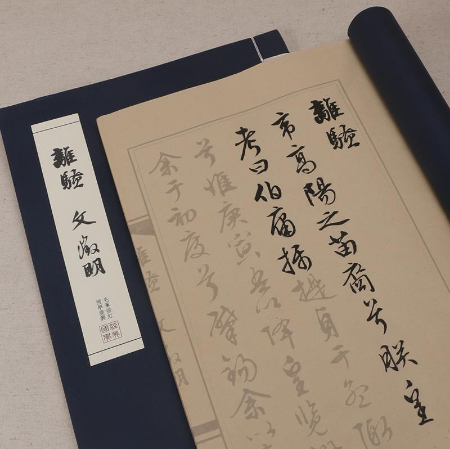 離騷
帝高陽之苗裔兮朕皇
考曰伯庸攝提貞于孟陬
兮惟庚寅吾以降皇覽
余于初度兮肇錫余以
離騷 文徵明
離騷 文徵明